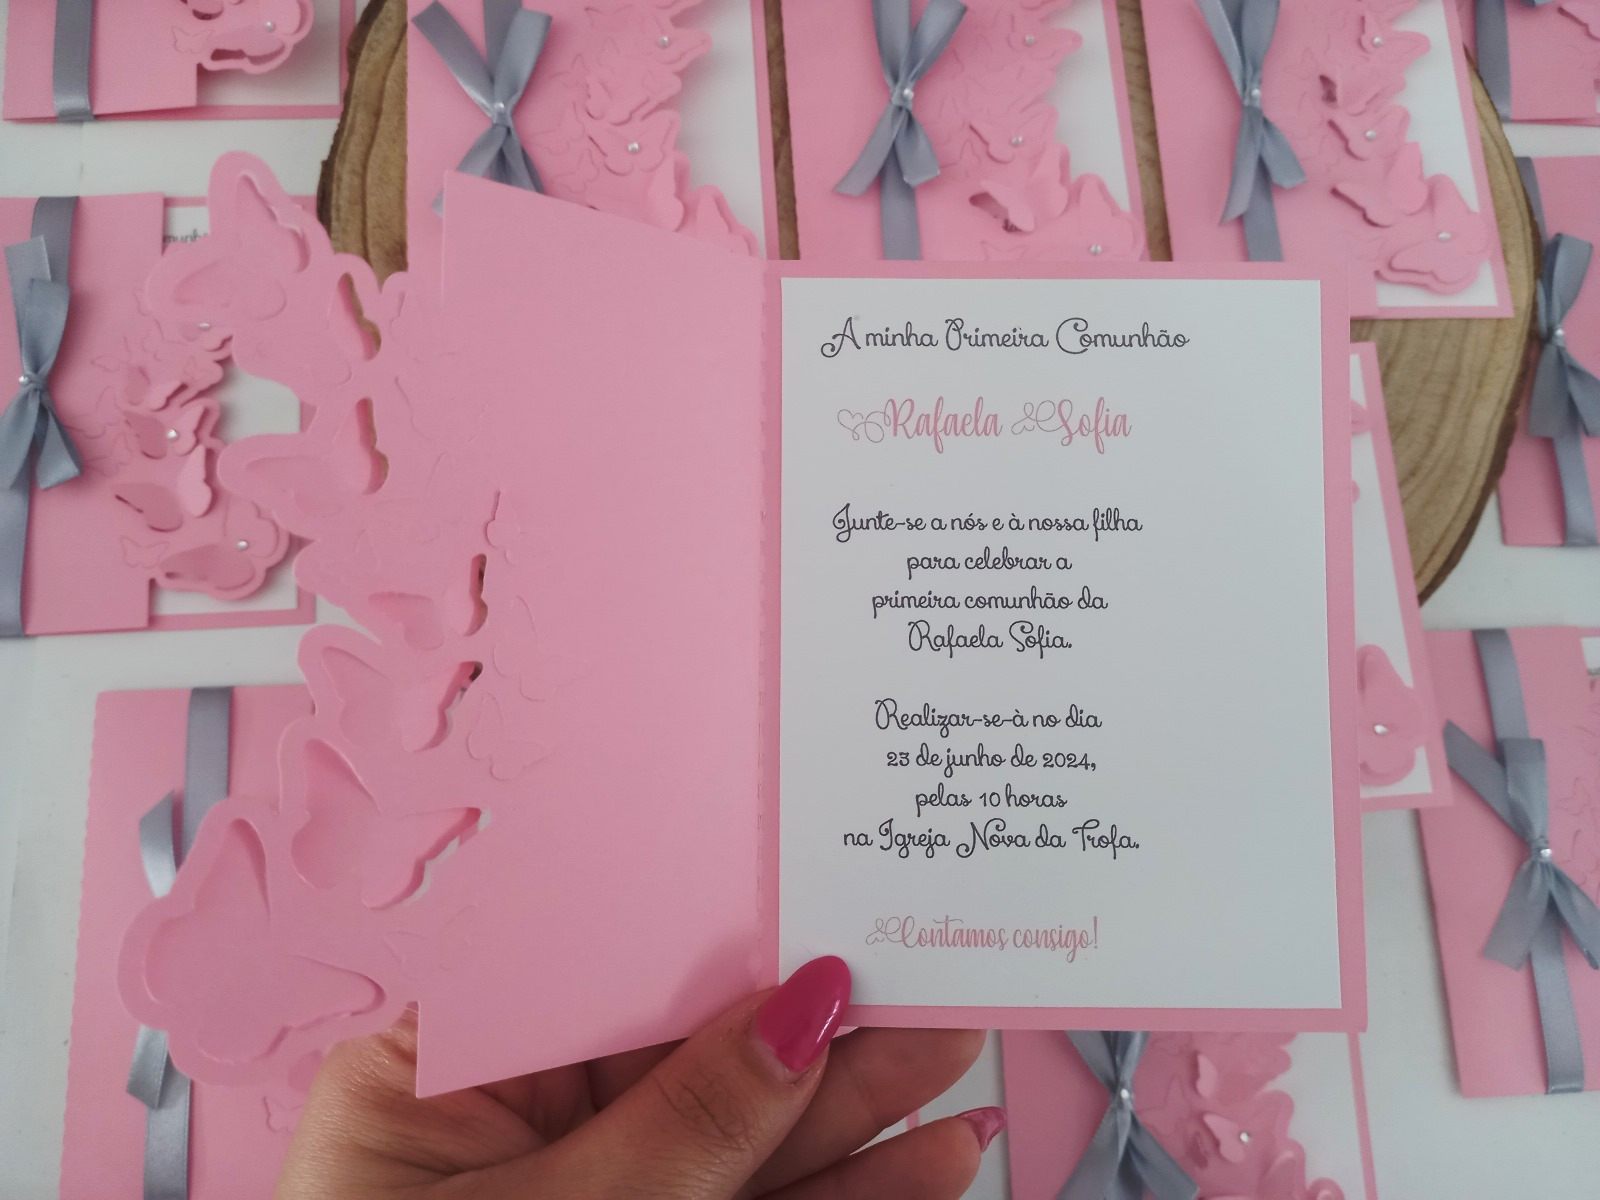 A minha Primeira Comunhão
Rafaela Sofia
Junte-se a nós e à nossa filha
para celebrar a
primeira comunhão da
Rafaela Sofia.
Realizar-se-à no dia
23 de junho de 2024,
pelas 10 horas
na Igreja Nova da Trofa.
Contamos consigo!